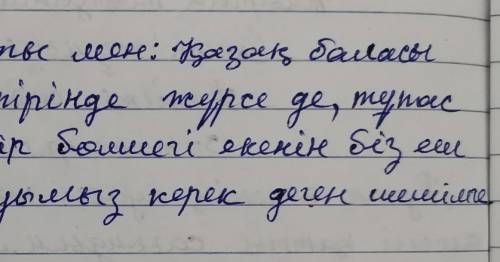 мен: Қазақ баласы
пірінде жүрсе де, тұтас
бір бөлшегі екенін біз еш
уымыз керек деген шешімге